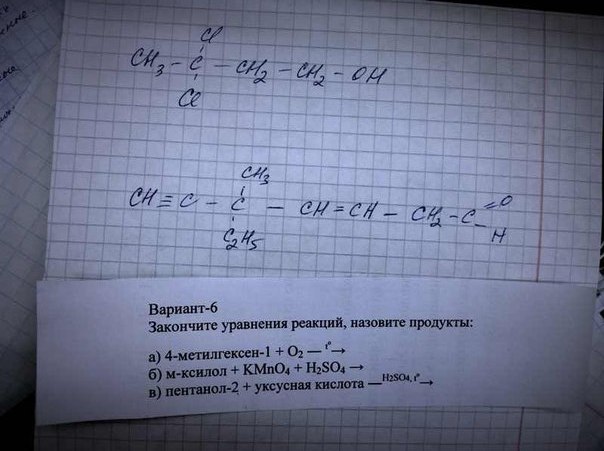 Cl
CH₃ - C - CH₂ - CH₂ - OH
Cl
CH₃
CH ≡ C - C - CH = CH - CH₂ - C = O
C₂H₅
H
Вариант-6
Закончите уравнения реакций, назовите продукты:
а) 4-метилгексен-1 + O₂ — t° →
б) м-ксилол + KMnO₄ + H₂SO₄ →
в) пентанол-2 + уксусная кислота —H2SO4, t°→